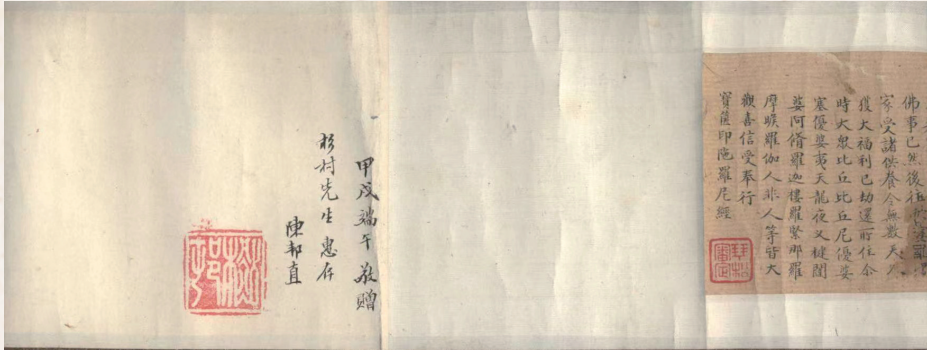 佛事已然後往
家受諸供養令無數天人
獲大福利已却還所住尒
時大衆比丘比丘尼優婆
塞優婆夷天龍夜叉揵闥
婆阿脩羅迦樓羅緊那羅
摩睺羅伽人非人等皆大
歡喜信受奉行
寶篋印陀羅尼經
甲戌端午敬贈
杉村先生惠存
陳邦直